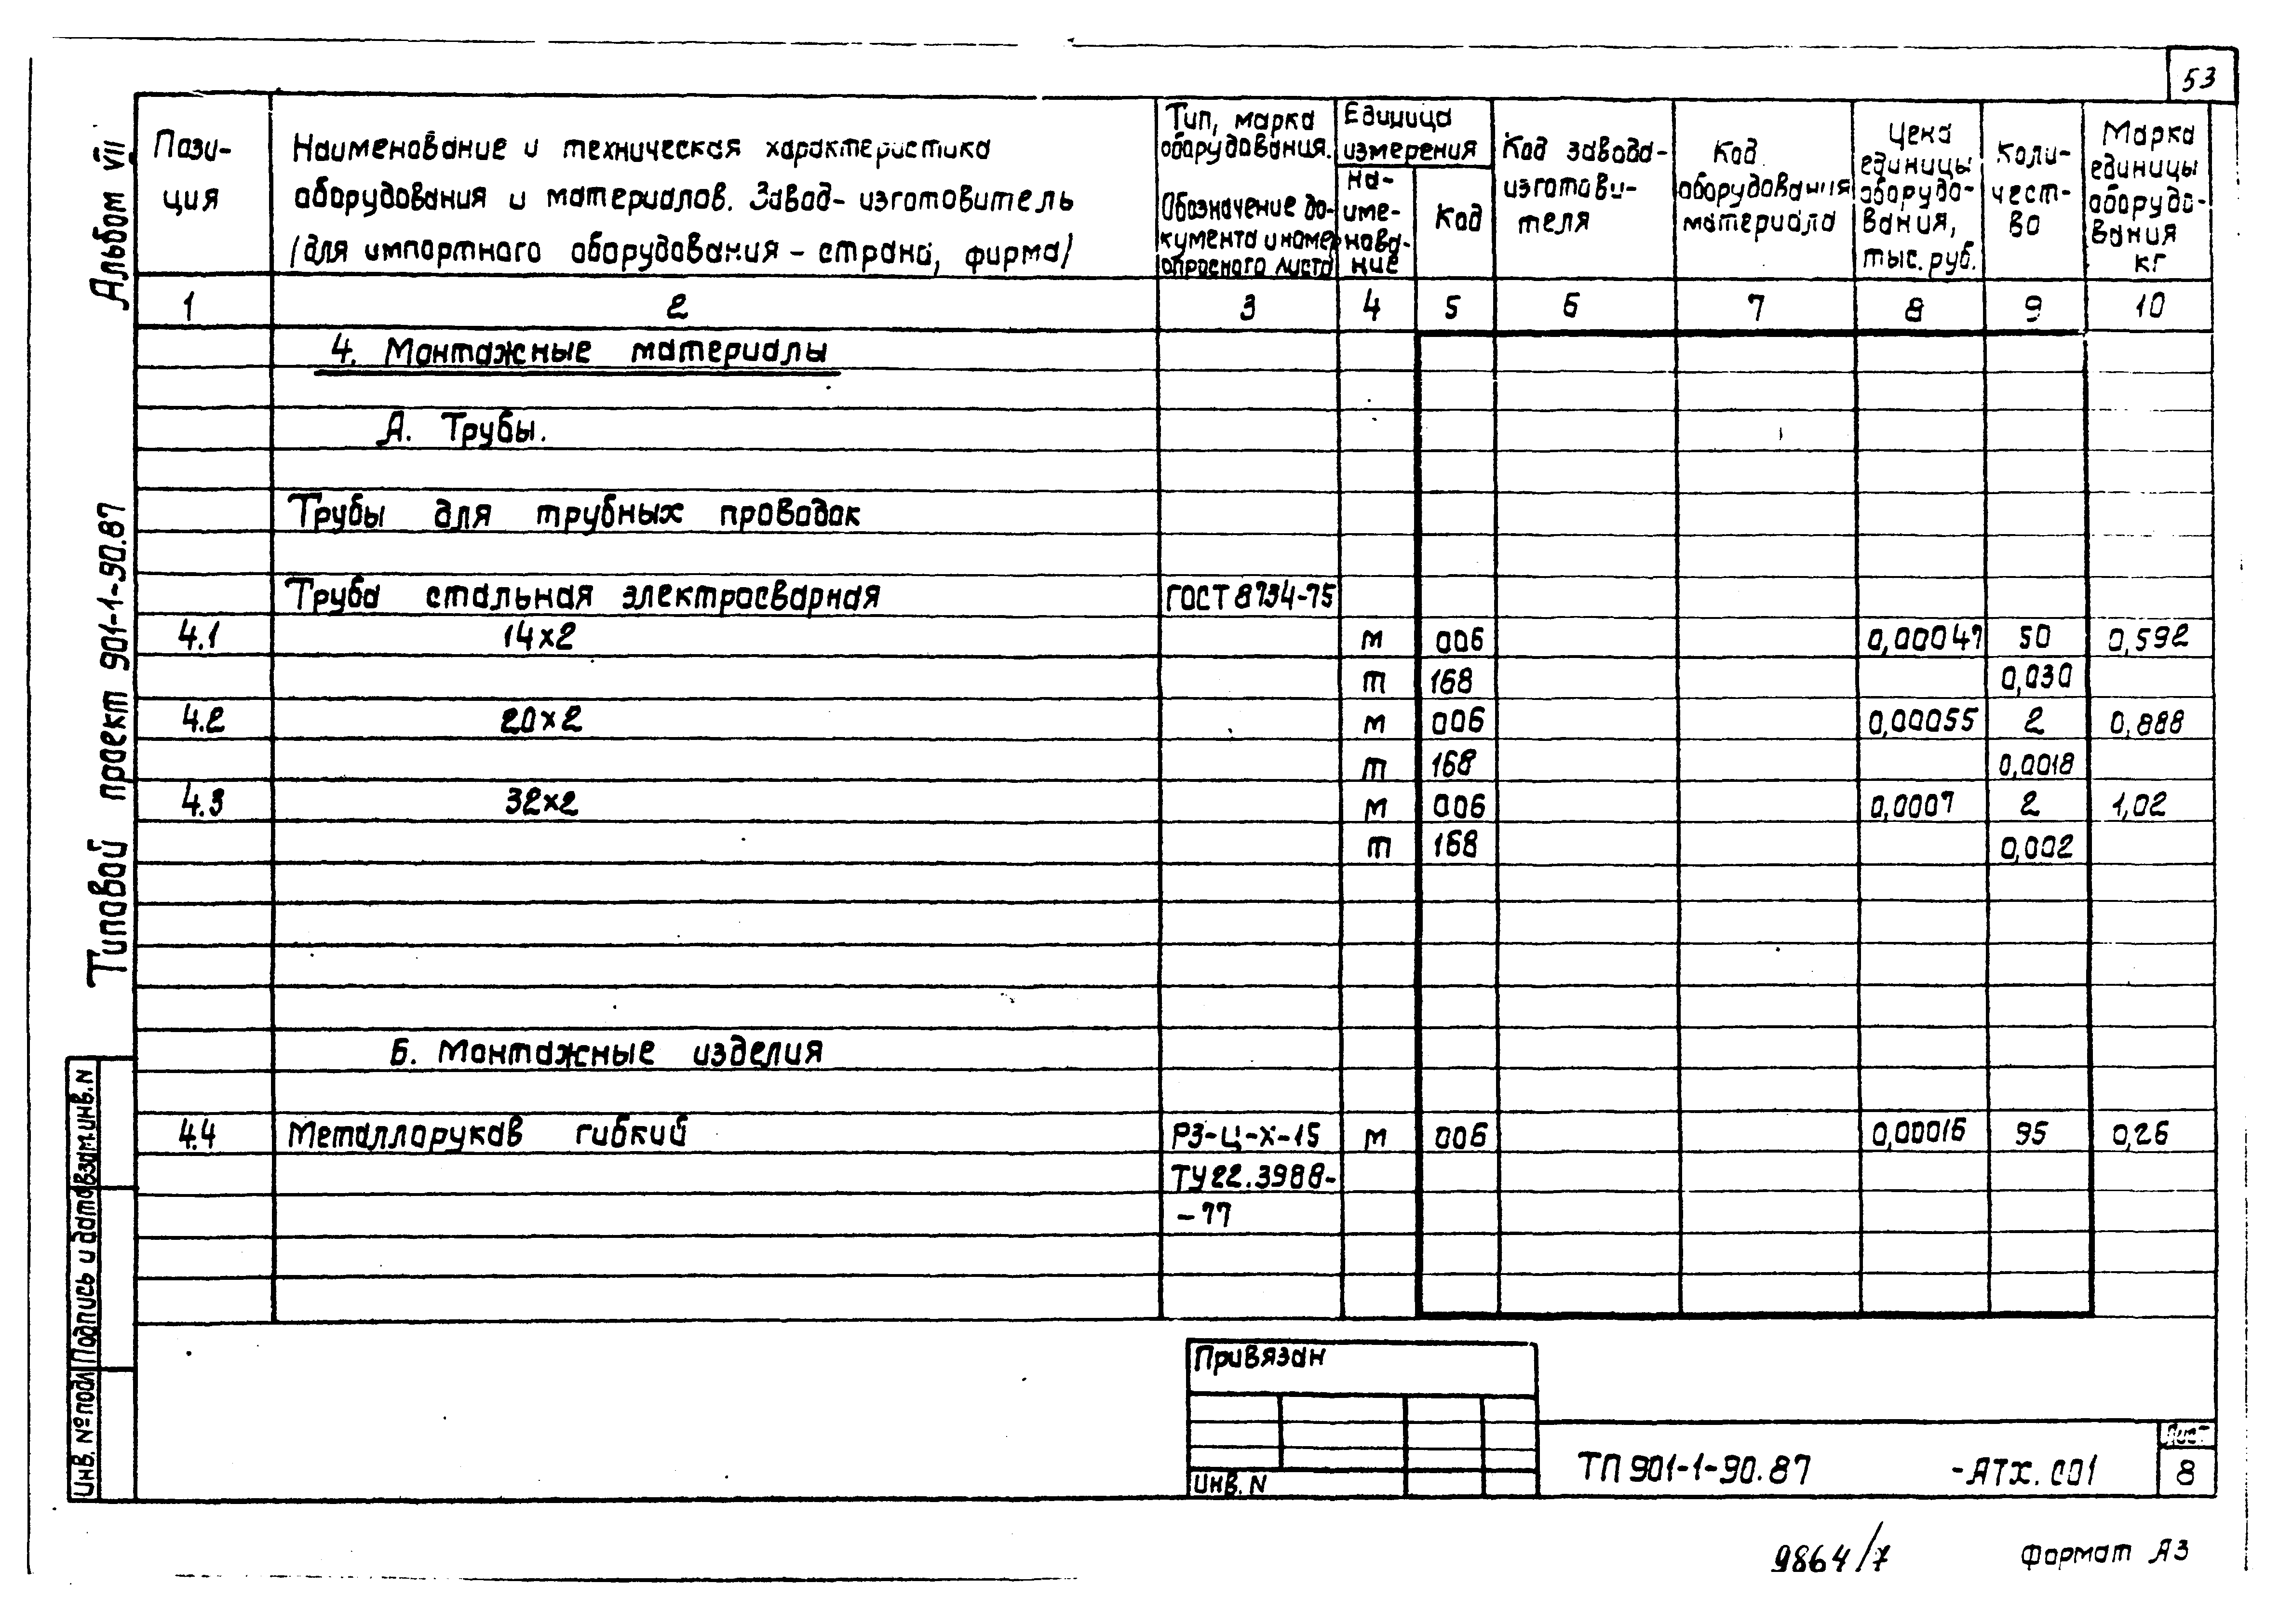 53
Альбом VII
Типовой проект 901-1-90.87
Пози-
ция
Наименование и техническая характеристика
оборудования и материалов. Завод-изготовитель
/для импортного оборудования – страна, фирма/
Тип, марка
оборудования.
Обозначение до-
кумента и номер
опросного листа
Единица
измерения
на-
име-
нова-
ние
Код
Код завода-
изготови-
теля
Код
оборудования
материала
Цена
единицы
оборудо-
вания,
тыс. руб.
Коли-
чест-
во
Марка
единицы
оборудо-
вания
кг
1 2 3 4 5 6 7 8 9 10
4. Монтажные материалы
А. Трубы.
Трубы для трубных проводок
Труба стальная электросварная ГОСТ 8734-75
4.1 14х2 м 006 0,00047 50 0,592
т 168 0,030
4.2 20х2 м 006 0,00055 2 0,888
т 168 0,0018
4.3 32х2 м 006 0,0007 2 1,02
т 168 0,002
Б. Монтажные изделия
4.4 Металлорукав гибкий РЗ-Ц-Х-15 м 006 0,00016 95 0,26
ТУ 22.3988-
-77
Инв. № подл Подпись и дата Взам. инв. N
Привязан
Инв. N
ТП 901-1-90.87 -АТХ.СО1
Лист
8
9864/7
Формат А3